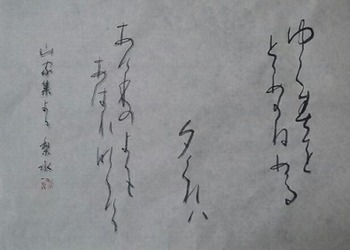 ゆく春を
とゝめかねぬる
夕くれハ
あけ本のよりも
あはれ那りけり
山家集より 梨水